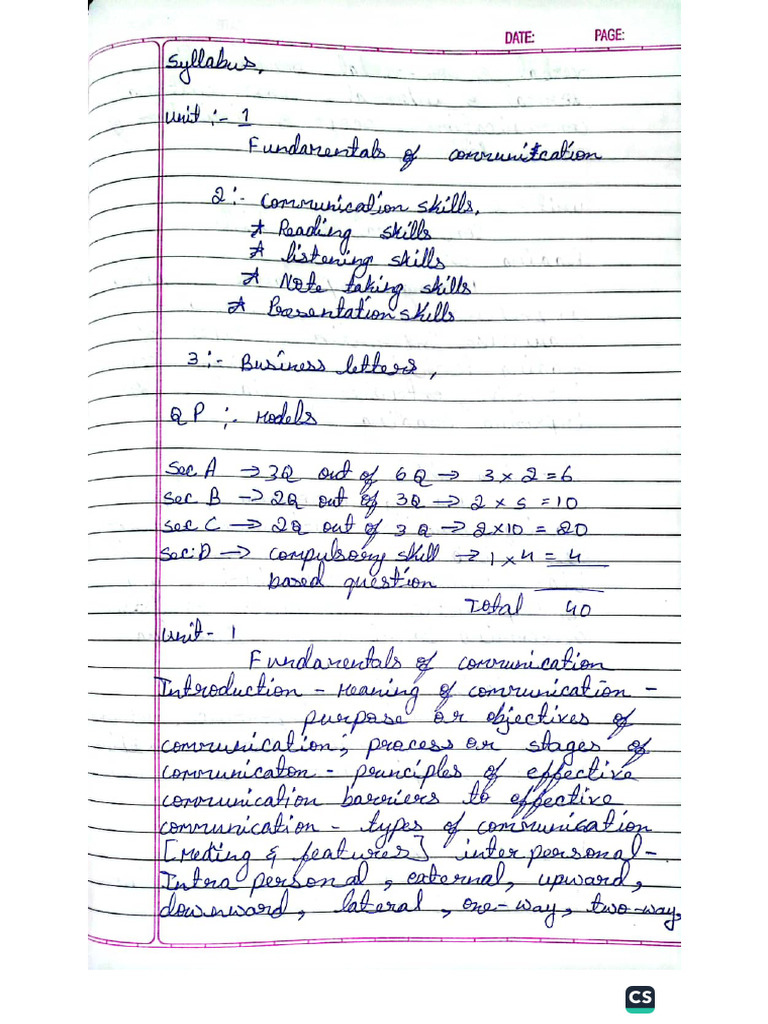 DATE: PAGE:
Syllabus,
Unit :- 1
Fundamentals of communitcation
2 :- Communication skills,
* Reading skills
* listening skills
* Note taking skills
* Presentation skills
3 :- Business letters,
QP :- Models
Sec A → 3Q out of 6Q → 3 × 2 = 6
Sec B → 2Q out of 3Q → 2 × 5 = 10
Sec C → 2Q out of 3Q → 2×10 = 20
Sec:D → compulsory skill → 1 × 4 = 4
based question
Total 40
Unit - 1
Fundamentals of communication
Introduction - Meaning of communication -
purpose or objectives of
communication; process or stages of
communicaton - principles of effective
communication barriers to effective
communication - types of communication
[Meding & features] inter personal -
Intra personal, external, upward,
downward, lateral, one-way, two-way,
CS